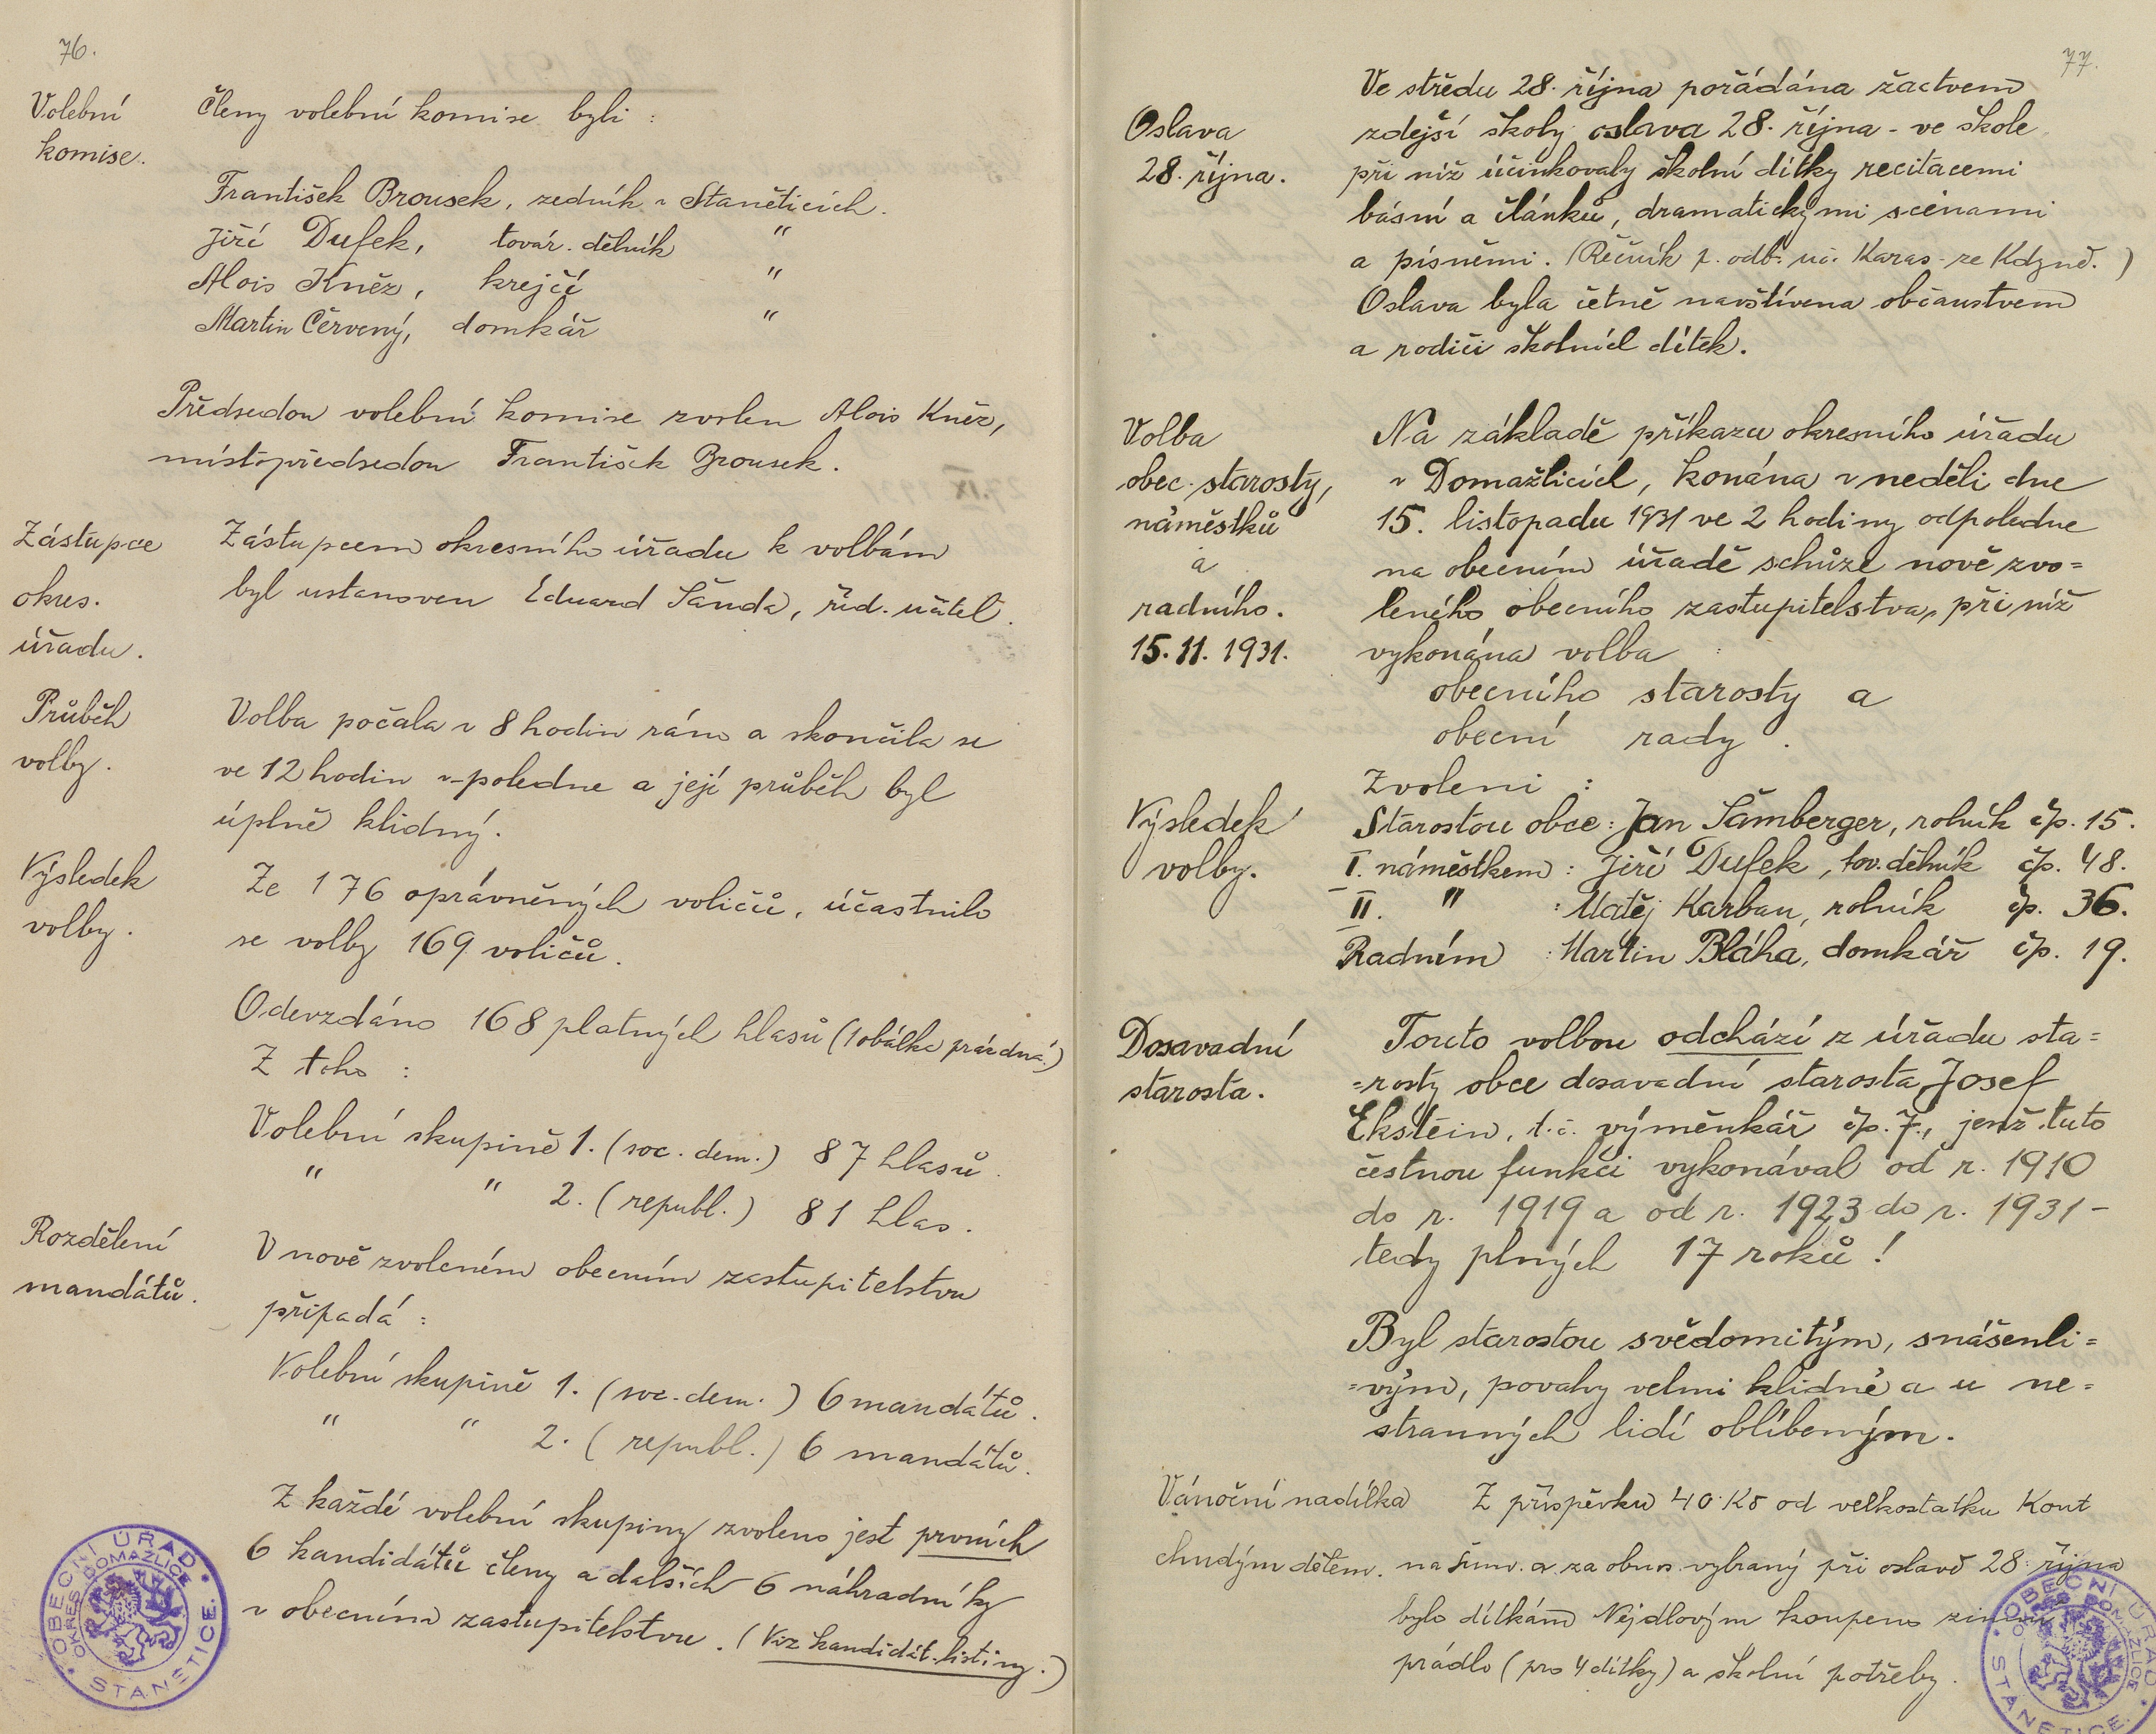 76.
Volební
komise.
Členy volební komise byli :
František Brousek, zedník v Staněticích.
Jiří Dufek, továr. dělník "
Alois Kněz, krejčí "
Martin Červený, domkář "
Předsedou volební komise zvolen Alois Kněz,
místopředsedou František Brousek.
Zástupce
okres.
úřadu.
Zástupcem okresního úřadu k volbám
byl ustanoven Eduard Šanda, říd. učitel.
Průběh
volby.
Volba počala v 8 hodin ráno a skončila se
ve 12 hodin v poledne a její průběh byl
úplně klidný.
Výsledek
volby.
Ze 176 oprávněných voličů, účastnilo
se volby 169 voličů.
Odevzdáno 168 platných hlasů (1 obálka prázdná.)
Z toho :
Volební skupině 1. (soc. dem.) 87 hlasů.
" " 2. (republ.) 81 hlas.
Rozdělení
mandátů.
V nově zvoleném obecním zastupitelstvu
připadá :
Volební skupině 1. (soc. dem.) 6 mandátů.
" " 2. (republ.) 6 mandátů.
Z každé volební skupiny zvoleno jest prvních
6 kandidátů členy a dalších 6 náhradníky
v obecním zastupitelstvu. (Viz kandidát. listiny.)
OBECNÍ ÚŘAD
OKRES DOMAŽLICE
STANĚTICE.
77.
Oslava
28. října.
Ve středu 28. října pořádána žactvem
zdejší školy oslava 28. října - ve škole
při níž účinkovaly školní dítky recitacemi
básní a článků, dramatickými scénami
a písněmi. (Řečník p. odb. uč. Karas ze Kdyně.)
Oslava byla četně navštívena občanstvem
a rodiči školních dítek.
Volba
obec. starosty,
náměstků
a
radního.
15. 11. 1931.
Na základě příkazu okresního úřadu
v Domažlicích, konána v neděli dne
15. listopadu 1931 ve 2 hodiny odpoledne
na obecním úřadě schůze nově zvo=
leného obecního zastupitelstva, při níž
vykonána volba :
obecního starosty a
obecní rady.
Výsledek
volby.
Zvoleni :
Starostou obce : Jan Šamberger, rolník čp. 15.
I. náměstkem : Jiří Dufek, tov. dělník čp. 48.
II. " : Matěj Karban, rolník čp. 36.
Radním : Martin Bláha, domkář čp. 19.
Dosavadní
starosta.
Touto volbou odchází z úřadu sta=
=rosty obce dosavadní starosta Josef
Ekstein, t. č. výměnkář čp. 7., jenž tuto
čestnou funkci vykonával od r. 1910
do r. 1919 a od r. 1923 do r. 1931 -
tedy plných 17 roků !
Byl starostou svědomitým, snášenli=
=vým, povahy velmi klidné a u ne=
stranných lidí oblíbeným.
Vánoční nadílka
chudým dětem.
Z příspěvku 40 Kč od velkostatku Kout
na Šum. a za obnos vybraný při oslavě 28. října
bylo dítkám Nejdlovým koupeno zimní
prádlo (pro 4 dítky) a školní potřeby.
OBECNÍ ÚŘAD
OKRES DOMAŽLICE
STANĚTICE.